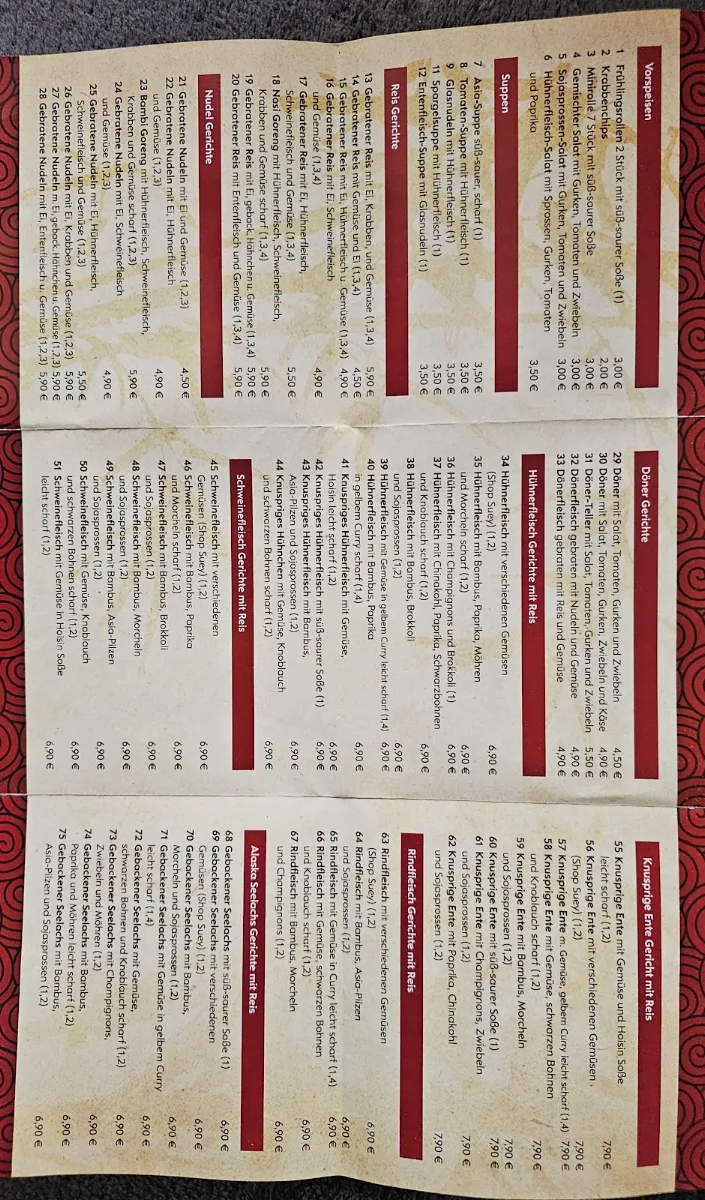 Vorspeisen
1 Frühlingsrollen 2 Stück mit süß-saurer Soße (1) 3,00 €
2 Krabbenchips 2,00 €
3 Minirolle 7 Stück mit süß-saurer Soße 3,00 €
4 Gemischter Salat mit Gurken, Tomaten und Zwiebeln 3,00 €
5 Sojasprossen-Salat mit Gurken, Tomaten und Zwiebeln 3,00 €
6 Hühnerfleisch-Salat mit Sprossen, Gurken, Tomaten
und Paprika 3,50 €
Suppen
7 Asia-Suppe süß-sauer, scharf (1) 3,50 €
8 Tomaten-Suppe mit Hühnerfleisch (1) 3,50 €
9 Glasnudeln mit Hühnerfleisch (1) 3,50 €
11 Spargelsuppe mit Hühnerfleisch (1) 3,50 €
12 Entenfleisch-Suppe mit Glasnudeln (1) 3,50 €
Reis Gerichte
13 Gebratener Reis mit Ei, Krabben, und Gemüse (1,3,4) 5,90 €
14 Gebratener Reis mit Gemüse und Ei (1,3,4) 4,50 €
15 Gebratener Reis mit Ei, Hühnerfleisch u. Gemüse (1,3,4) 4,90 €
16 Gebratener Reis mit Ei, Schweinefleisch
und Gemüse (1,3,4) 4,90 €
17 Gebratener Reis mit Ei, Hühnerfleisch,
Schweinefleisch und Gemüse (1,3,4) 5,50 €
18 Nasi Goreng mit Hühnerfleisch, Schweinefleisch,
Krabben und Gemüse scharf (1,3,4) 5,90 €
19 Gebratener Reis mit Ei, geback. Hähnchen u. Gemüse (1,3,4) 5,90 €
20 Gebratener Reis mit Entenfleisch und Gemüse (1,3,4) 5,90 €
Nudel Gerichte
21 Gebratene Nudeln mit Ei und Gemüse (1,2,3) 4,50 €
22 Gebratene Nudeln mit Ei, Hühnerfleisch
und Gemüse (1,2,3) 4,90 €
23 Bambi Goreng mit Hühnerfleisch, Schweinefleisch,
Krabben und Gemüse scharf (1,2,3) 5,90 €
24 Gebratene Nudeln mit Ei, Schweinefleisch
und Gemüse (1,2,3) 4,90 €
25 Gebratene Nudeln mit Ei, Hühnerfleisch,
Schweinefleisch und Gemüse (1,2,3) 5,50 €
26 Gebratene Nudeln mit Ei, Krabben und Gemüse (1,2,3) 5,90 €
27 Gebratene Nudeln m. Ei, geback. Hähnchen u. Gemüse (1,2,3) 5,90 €
28 Gebratene Nudeln mit Ei, Entenfleisch u. Gemüse (1,2,3) 5,90 €
Döner Gerichte
29 Döner mit Salat, Tomaten, Gurken und Zwiebeln 4,50 €
30 Döner mit Salat, Tomaten, Gurken, Zwiebeln und Käse 4,90 €
31 Döner-Teller mit Salat, Tomaten, Gurken und Zwiebeln 5,50 €
32 Dönerfleisch gebraten mit Nudeln und Gemüse 4,90 €
33 Dönerfleisch gebraten mit Reis und Gemüse 4,90 €
Hühnerfleisch Gerichte mit Reis
34 Hühnerfleisch mit verschiedenen Gemüsen
(Shop Suey) (1,2) 6,90 €
35 Hühnerfleisch mit Bambus, Paprika, Möhren
und Morcheln scharf (1,2) 6,90 €
36 Hühnerfleisch mit Champignons und Brokkoli (1) 6,90 €
37 Hühnerfleisch mit Chinakohl, Paprika, Schwarzbohnen
und Knoblauch scharf (1,2) 6,90 €
38 Hühnerfleisch mit Bambus, Brokkoli
und Sojasprossen (1,2) 6,90 €
39 Hühnerfleisch mit Gemüse in gelbem Curry leicht scharf (1,4) 6,90 €
40 Hühnerfleisch mit Bambus, Paprika
in gelbem Curry scharf (1,4) 6,90 €
41 Knuspriges Hühnerfleisch mit Gemüse,
Hoisin leicht scharf (1,2) 6,90 €
42 Knuspriges Hühnerfleisch mit süß-saurer Soße (1) 6,90 €
43 Knuspriges Hühnerfleisch mit Bambus,
Asia-Pilzen und Sojasprossen (1,2) 6,90 €
44 Knuspriges Hühnchen mit Gemüse, Knoblauch
und schwarzen Bohnen scharf (1,2) 6,90 €
Schweinefleisch Gerichte mit Reis
45 Schweinefleisch mit verschiedenen
Gemüsen (Shop Suey) (1,2) 6,90 €
46 Schweinefleisch mit Bambus, Paprika
und Morcheln scharf (1,2) 6,90 €
47 Schweinefleisch mit Bambus, Brokkoli
und Sojasprossen (1,2) 6,90 €
48 Schweinefleisch mit Bambus, Morcheln
und Sojasprossen (1,2) 6,90 €
49 Schweinefleisch mit Bambus, Asia-Pilzen
und Sojasprossen (1,2) 6,90 €
50 Schweinefleisch mit Gemüse, Knoblauch
und schwarzen Bohnen scharf (1,2) 6,90 €
51 Schweinefleisch mit Gemüse in Hoisin Soße
leicht scharf (1,2) 6,90 €
Knusprige Ente Gericht mit Reis
55 Knusprige Ente mit Gemüse und Hoisin Soße
leicht scharf (1,2) 7,90 €
56 Knusprige Ente mit verschiedenen Gemüsen
(Shop Suey) (1,2) 7,90 €
57 Knusprige Ente m. Gemüse, gelbem Curry leicht scharf (1,4) 7,90 €
58 Knusprige Ente mit Gemüse, schwarzen Bohnen
und Knoblauch scharf (1,2) 7,90 €
59 Knusprige Ente mit Bambus, Morcheln
und Sojasprossen (1,2) 7,90 €
60 Knusprige Ente mit süß-saurer Soße (1) 7,90 €
61 Knusprige Ente mit Champignons, Zwiebeln
und Sojasprossen (1,2) 7,90 €
62 Knusprige Ente mit Paprika, Chinakohl
und Sojasprossen (1,2) 7,90 €
Rindfleisch Gerichte mit Reis
63 Rindfleisch mit verschiedenen Gemüsen
(Shop Suey) (1,2) 6,90 €
64 Rindfleisch mit Bambus, Asia-Pilzen
und Sojasprossen (1,2) 6,90 €
65 Rindfleisch mit Gemüse in Curry leicht scharf (1,4) 6,90 €
66 Rindfleisch mit Gemüse, schwarzen Bohnen
und Knoblauch scharf (1,2) 6,90 €
67 Rindfleisch mit Bambus, Morcheln
und Champignons (1,2) 6,90 €
Alaska Seelachs Gerichte mit Reis
68 Gebackener Seelachs mit süß-saurer Soße (1) 6,90 €
69 Gebackener Seelachs mit verschiedenen
Gemüsen (Shop Suey) (1,2) 6,90 €
70 Gebackener Seelachs mit Bambus,
Morcheln und Sojasprossen (1,2) 6,90 €
71 Gebackener Seelachs mit Gemüse in gelbem Curry
leicht scharf (1,4) 6,90 €
72 Gebackener Seelachs mit Gemüse,
schwarzen Bohnen und Knoblauch scharf (1,2) 6,90 €
73 Gebackener Seelachs mit Champignons,
Zwiebeln und Möhren (1,2) 6,90 €
74 Gebackener Seelachs mit Bambus,
Paprika und Möhren leicht scharf (1,2) 6,90 €
75 Gebackener Seelachs mit Bambus,
Asia-Pilzen und Sojasprossen (1,2) 6,90 €